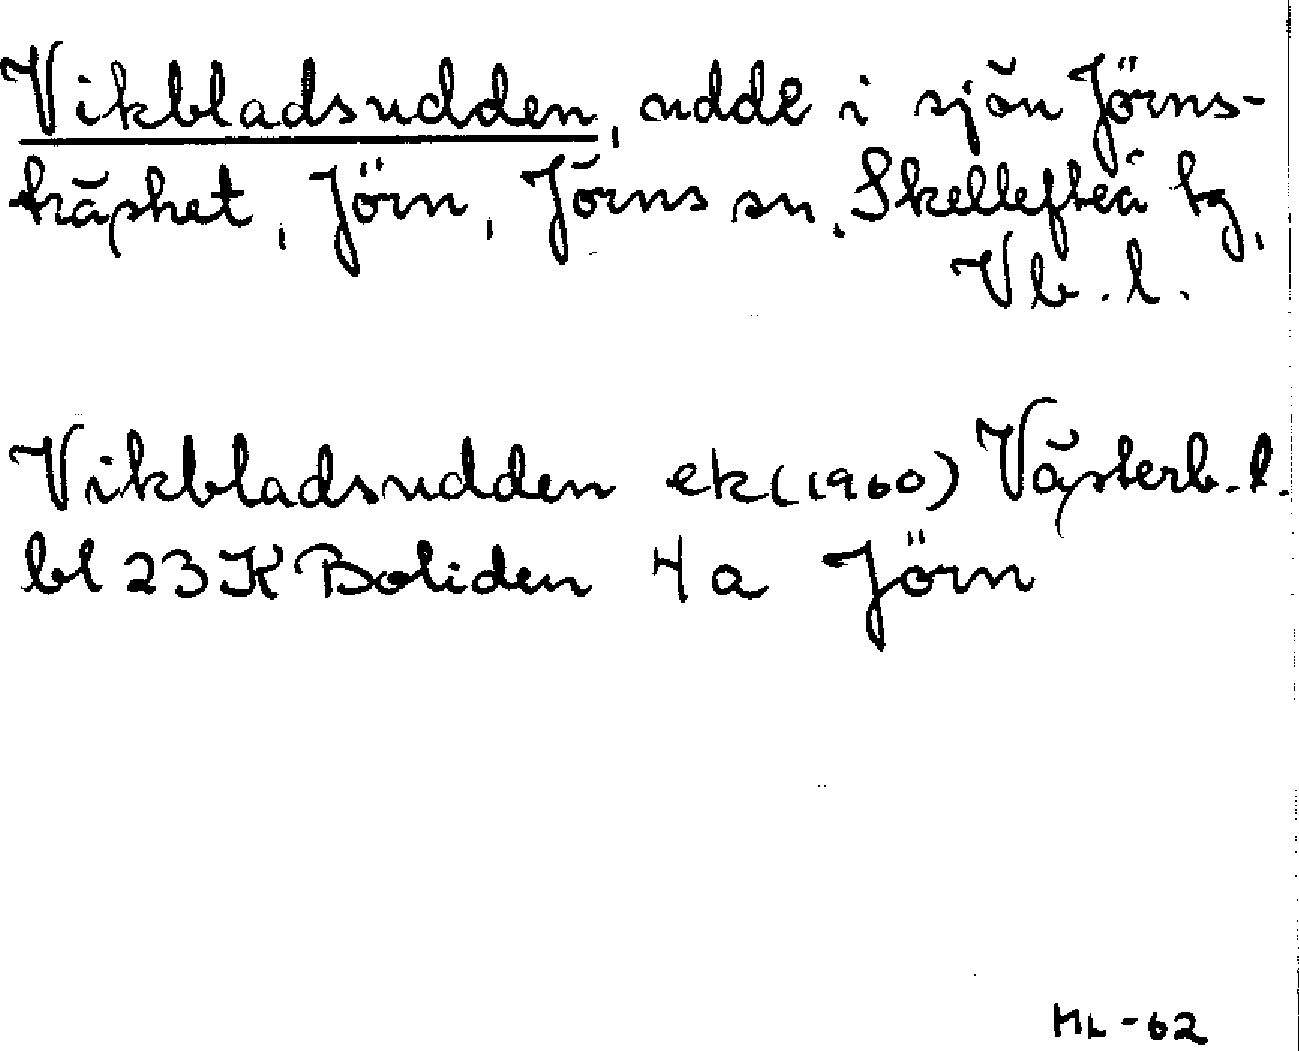 Vikbladsudden, udde i sjön Jörns-
träsket, Jörn, Jörns sn, Skellefteå tg,
Vb. l.
Vikbladsudden ek (1960) Västerb. l.
bl 23 K Boliden 4 a Jörn
ML -62